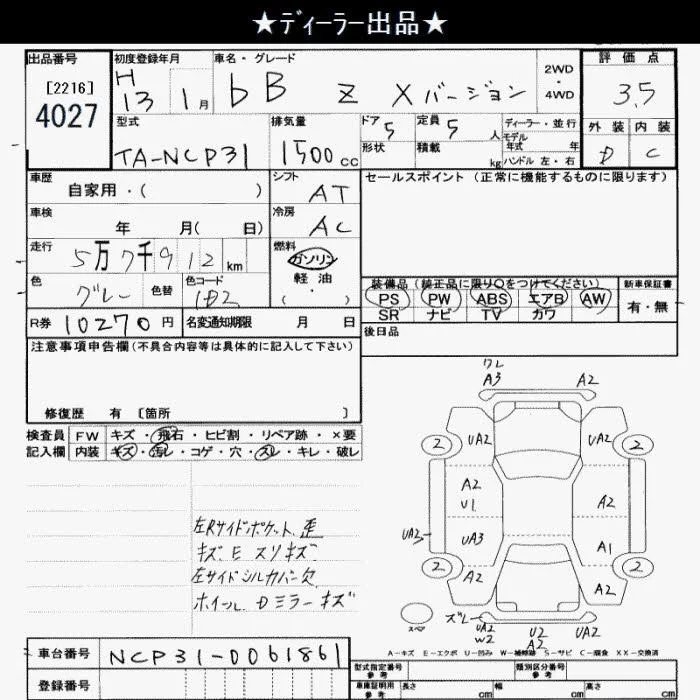 ★ディーラー出品★
出品番号 初度登録年月 車名・グレード 評価点
[2216] H 13 1月 bB Z Xバージョン 2WD・4WD 3.5
4027
型式 排気量 ドア 5 定員 5人 ディーラー・並行 外装 内装
モデル年式 年
TA-NCP31 1500cc 形状 積載 kg ハンドル 左・右 D C
車歴 シフト セールスポイント (正常に機能するものに限ります)
自家用・( ) AT
車検 冷房
年 月( 日) AC
走行 燃料
5万7千912km ガソリン
軽油
色 色替 色コード (・) 装備品 (純正品に限り○をつけてください) 新車保証書
グレー 1D2 PS PW ABS エアB AW 有・無
SR ナビ TV カワ
R券 10270円 名変通知期限 月 日 後日品
注意事項申告欄(不具合内容等は具体的に記入して下さい)
修復歴 有 [箇所 ]
検査員 FW キズ・飛石・ヒビ割・リペア跡・×要
記入欄 内装 キズ・汚レ・コゲ・穴・スレ・キレ・破レ
左Rサイドポケット 歪
キズ E スリキズ
左サイドシルカバー欠
ホイール Dミラーキズ
ワレ
A3 A2
2 UA2 UA2 2
A2
U1 A2
UA2 UA3 A1
2 A2 A2 2
スペア ズレ UA2 W2 U2 A2 UA2
A-キズ E-エクボ U-凹み W-補修跡 S-サビ C-腐食 XX-交換済
車台番号 NCP31-0061861
型式指定番号 参考 類別区分番号 参考
登録番号 車庫証明用 参考 長さ cm 幅 cm 高さ cm